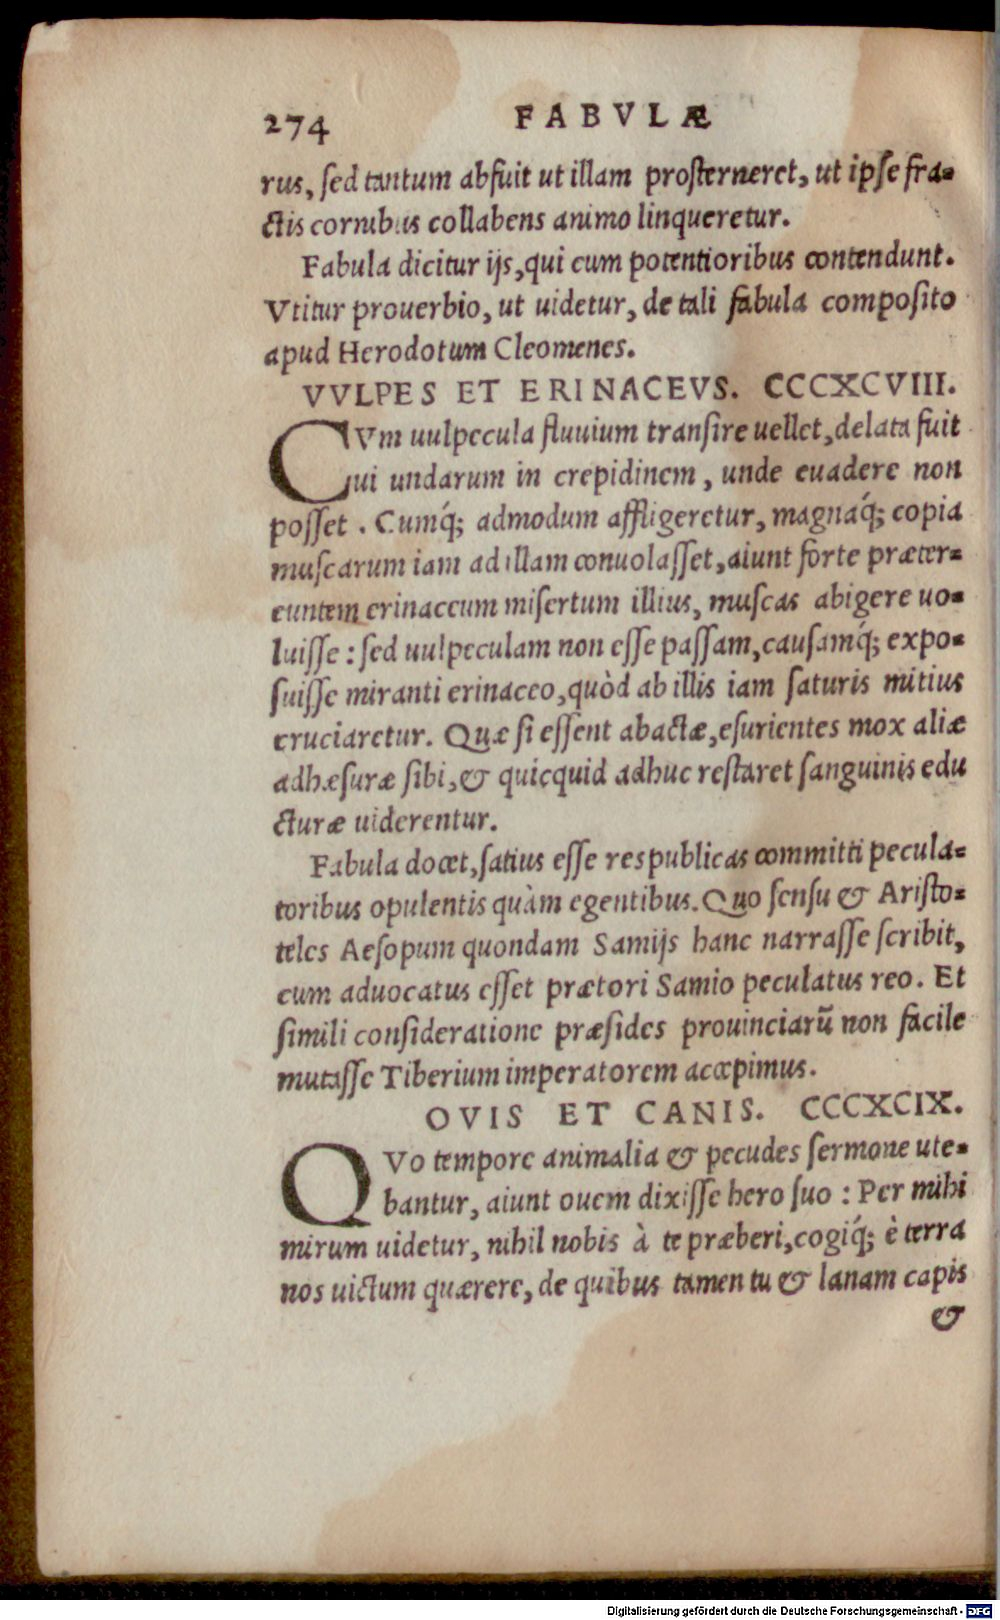 274 FABVLÆ
rus, sed tantum abfuit ut illam prosterneret, ut ipse fra-
ctis cornibus collabens animo linqueretur.
Fabula dicitur ijs, qui cum potentioribus contendunt.
Vtitur prouerbio, ut uidetur, de tali fabula composito
apud Herodotum Cleomenes.
VVLPES ET ERINACEVS. CCCXCVIII.
CVm uulpecula fluuium transire uellet, delata fuit
ui undarum in crepidinem, unde euadere non
posset. Cumq́; admodum affligeretur, magnaq́; copia
muscarum iam ad illam conuolasset, aiunt forte præter-
euntem erinaceum misertum illius, muscas abigere uo-
luisse: sed uulpeculam non esse passam, causamq́; expo-
suisse miranti erinaceo, quòd ab illis iam saturis mitius
cruciaretur. Quæ si essent abactæ, esurientes mox aliæ
adhæsuræ sibi, & quicquid adhuc restaret sanguinis edu
cturæ uiderentur.
Fabula docet, satius esse respublicas committi pecula-
toribus opulentis quàm egentibus. Quo sensu & Aristo-
teles Aesopum quondam Samijs hanc narrasse scribit,
cum aduocatus esset prætori Samio peculatus reo. Et
simili consideratione præsides prouinciarũ non facile
mutasse Tiberium imperatorem accepimus.
OVIS ET CANIS. CCCXCIX.
QVo tempore animalia & pecudes sermone ute-
bantur, aiunt ouem dixisse hero suo: Per mihi
mirum uidetur, nihil nobis à te præberi, cogiq́; è terra
nos uictum quærere, de quibus tamen tu & lanam capis
&
Digitalisierung gefördert durch die Deutsche Forschungsgemeinschaft - DFG